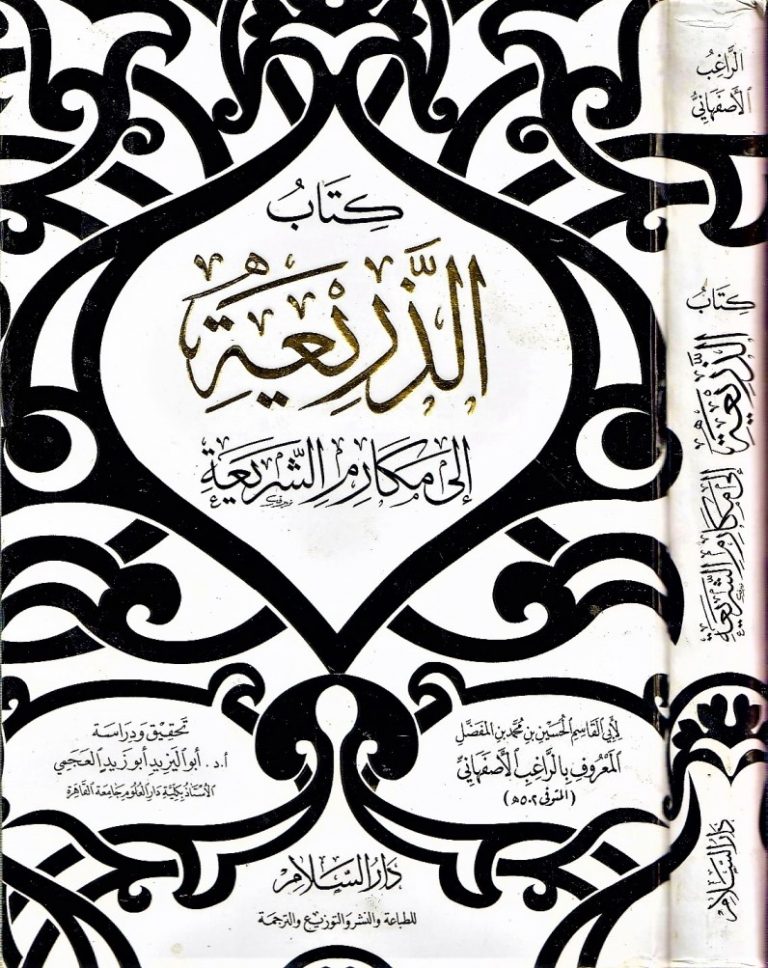 كِتَابُ
الذَّرِيْعَةِ
إِلىَ مَكَارِمِ الشَّرِيْعَةِ
لِأَبِي القَاسِمِ الحُسَيْنِ بنِ مُحَمَّدِ بنِ المُفَضَّلِ
المَعْرُوفِ بِالرَّاغِبِ الأَصْفَهَانِيِّ
(المتوفى ٥٠٢ هـ)
تَحْقِيْق وَدِرَاسَة
أ.د. أبو اليزيد أبو زيد العجمي
الأُسْتَاذ بِكُلِّيَّةِ دَارِ العُلُوم جَامِعَة القَاهِرَة
دَارُ السَّلَامِ
للطباعة والنشر والتوزيع والترجمة
الرَّاغِبُ
الأَصْفَهَانِيُّ
كِتَابُ
الذَّرِيْعَةِ إِلىَ مَكَارِمِ الشَّرِيْعَةِ
دَارُ السَّلَامِ